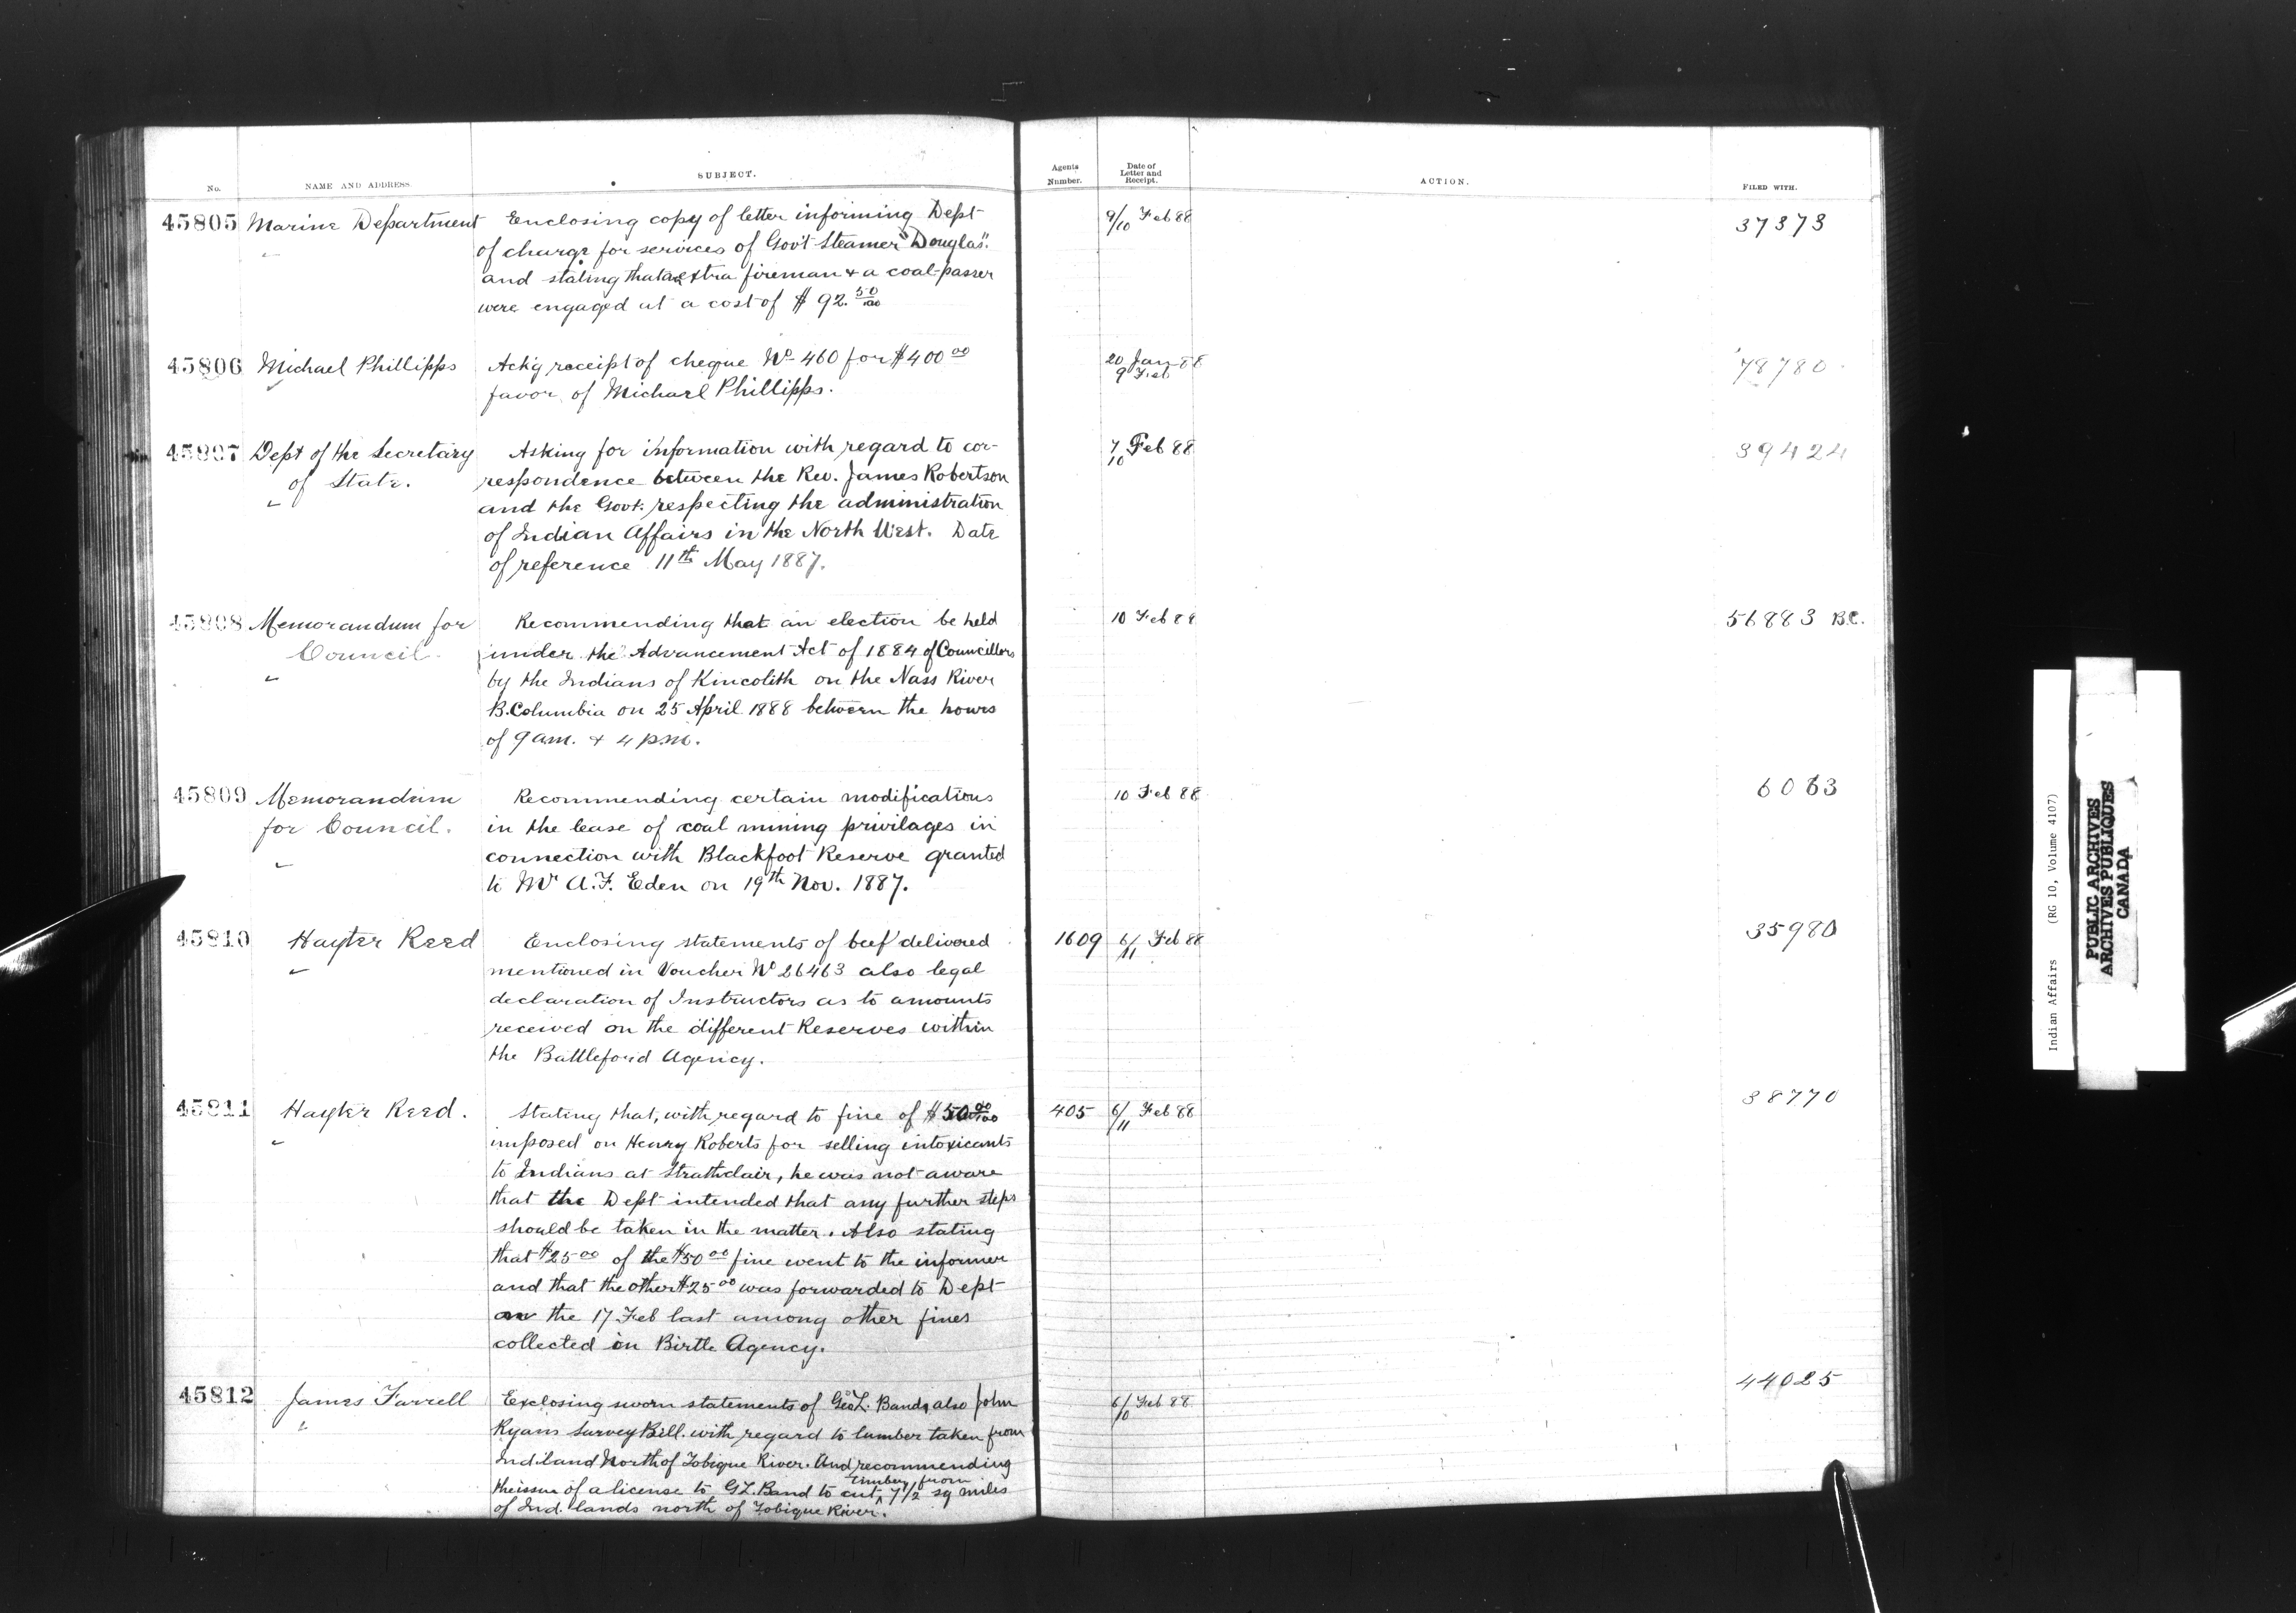 No. NAME AND ADDRESS. SUBJECT. Agents Number. Date of Letter and Receipt. ACTION. FILED WITH.
45805 Marine Department Enclosing copy of letter informing Dept 9/10 Feb 88 37373
of charge for services of Gov't Steamer "Douglas".
and stating that an extra fireman & a coal-passer
were engaged at a cost of $92.50/100
45806 Michael Phillipps Ack'g receipt of cheque No 460 for $400 00 20 Jan 88 78780
favor of Michael Phillipps. 9 Feb
45807 Dept of the Secretary Asking for information with regard to cor- 7/10 Feb 88 39424
of State. respondence between the Rev. James Robertson
and the Govt. respecting the administration
of Indian Affairs in the North West. Date
of reference 11th May 1887.
45808 Memorandum for Recommending that an election be held 10 Feb 88 56883 B.C.
Council under the Advancement Act of 1884 of Councillors
by the Indians of Kincolith on the Nass River
B. Columbia on 25 April 1888 between the hours
of 9 a.m. & 4 p.m.
45809 Memorandum Recommending certain modifications 10 Feb 88 6083
for Council. in the lease of coal mining privilages in
connection with Blackfoot Reserve granted
to Mr A.F. Eden on 19th Nov. 1887.
45810 Hayter Reed Enclosing statements of beef delivered 1609 6/11 Feb 88 35980
mentioned in Voucher No 26463 also legal
declaration of Instructors as to amounts
received on the different Reserves within
the Battleford Agency.
45811 Hayter Reed. Stating that, with regard to fine of $50 00/100 405 6/11 Feb 88 38770
imposed on Henry Roberts for selling intoxicants
to Indians at Strathclair, he was not aware
that the Dept intended that any further steps
should be taken in the matter. Also stating
that $25 00 of the $50 00 fine went to the informer
and that the other $25 00 was forwarded to Dept
on the 17 Feb last among other fines
collected in Birtle Agency.
45812 James Farrell Exclosing sworn statements of Geo L. Band, also John 6/10 Feb 88 44025
Ryan's Survey Bill with regard to lumber taken from
Ind. land North of Tobique River. And recommending
the issue of a license to G L. Band to cut timber from 7 1/2 sq miles
of Ind. lands north of Tobique River.
Indian Affairs (RG 10, Volume 4107)
PUBLIC ARCHIVES
ARCHIVES PUBLIQUES
CANADA